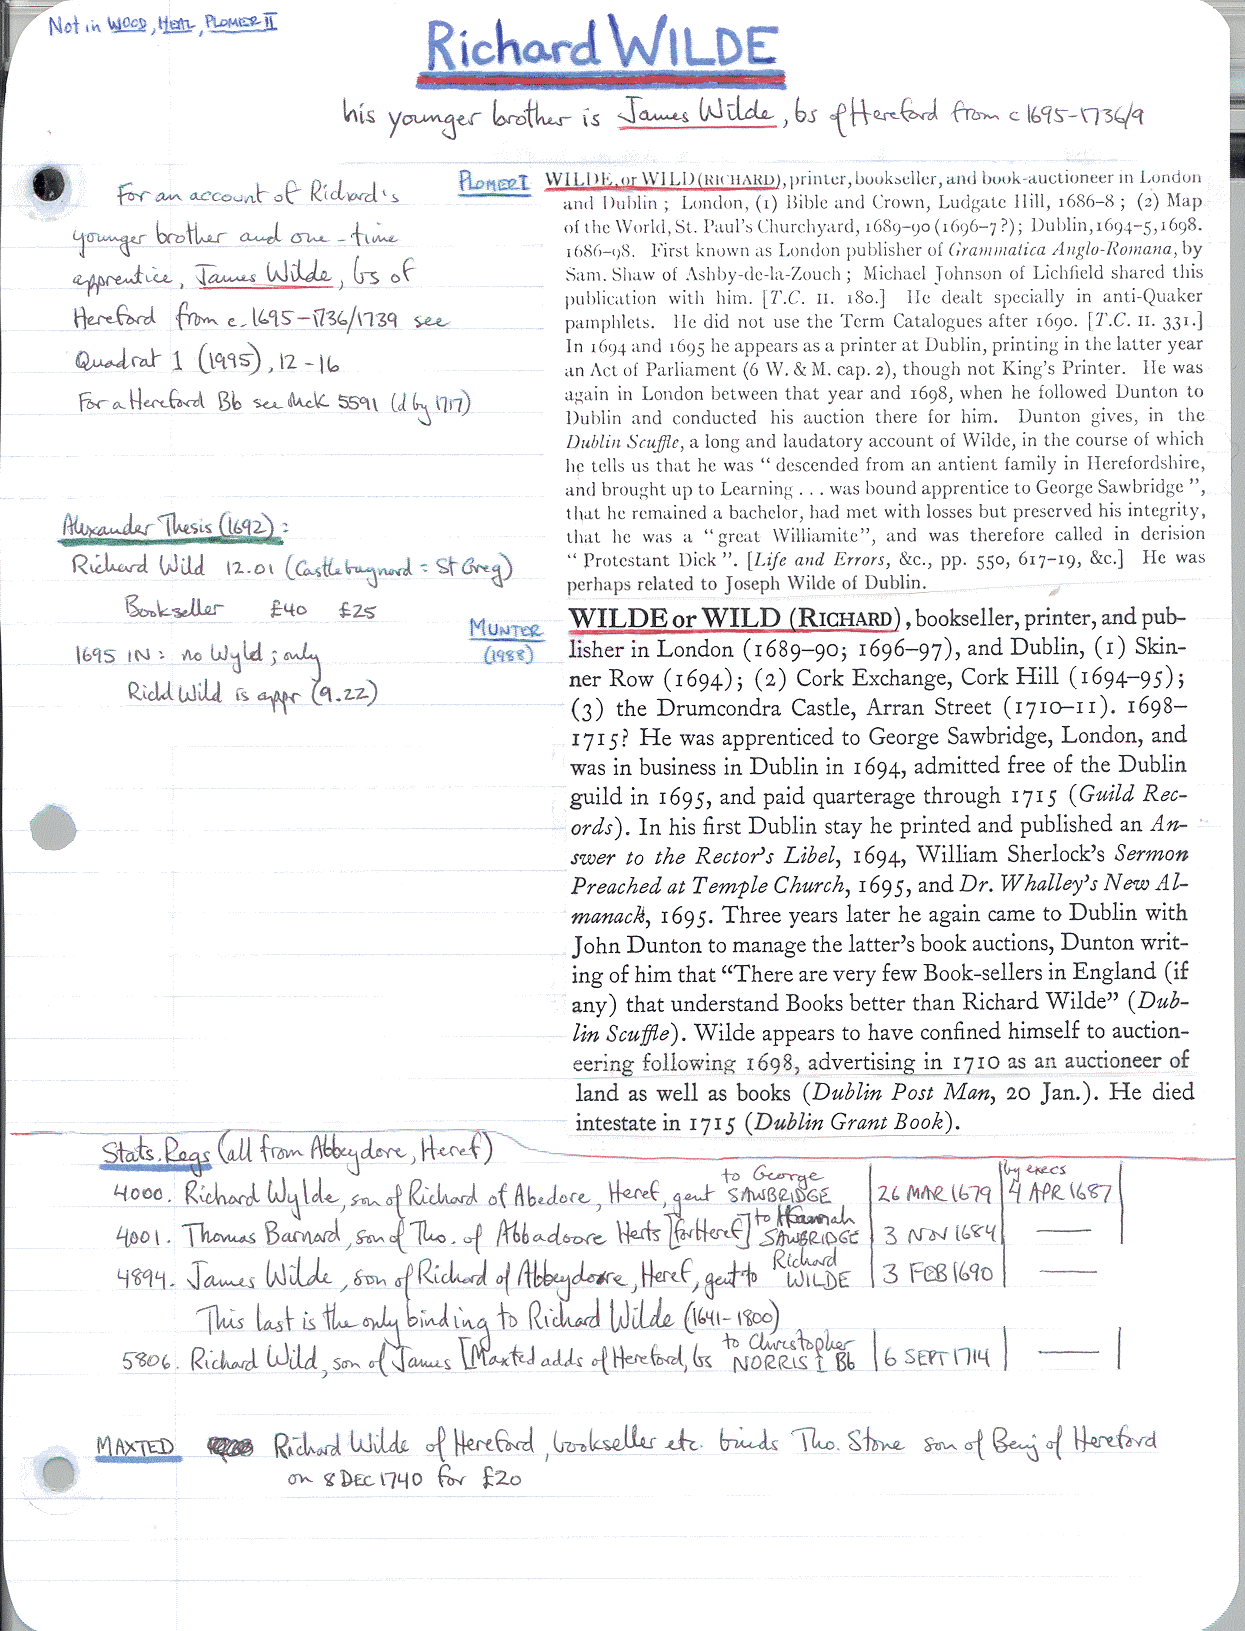 Not in WOOD, HEAL, PLOMER II
Richard WILDE
his younger brother is James Wilde, bs of Hereford from c1695-1736/9
For an account of Richard's
younger brother and one-time
apprentice, James Wilde, bs of
Hereford from c.1695-1736/1739 see
Quadrat 1 (1995), 12-16
For a Hereford Bb see McK 5591 (d by 1717)
PLOMER I
WILDE, or WILD (RICHARD), printer, bookseller, and book-auctioneer in London
and Dublin; London, (1) Bible and Crown, Ludgate Hill, 1686-8; (2) Map
of the World, St. Paul's Churchyard, 1689-90 (1696-7?); Dublin, 1694-5, 1698.
1686-98. First known as London publisher of Grammatica Anglo-Romana, by
Sam. Shaw of Ashby-de-la-Zouch; Michael Johnson of Lichfield shared this
publication with him. [T.C. II. 180.] He dealt specially in anti-Quaker
pamphlets. He did not use the Term Catalogues after 1690. [T.C. II. 331.]
In 1694 and 1695 he appears as a printer at Dublin, printing in the latter year
an Act of Parliament (6 W. & M. cap. 2), though not King's Printer. He was
again in London between that year and 1698, when he followed Dunton to
Dublin and conducted his auction there for him. Dunton gives, in the
Dublin Scuffle, a long and laudatory account of Wilde, in the course of which
he tells us that he was "descended from an antient family in Herefordshire,
and brought up to Learning . . . was bound apprentice to George Sawbridge",
that he remained a bachelor, had met with losses but preserved his integrity,
that he was a "great Williamite", and was therefore called in derision
"Protestant Dick". [Life and Errors, &c., pp. 550, 617-19, &c.] He was
perhaps related to Joseph Wilde of Dublin.
Alexander Thesis (1692):
Richard Wild 12.01 (Castlebaynard = St Greg)
Bookseller £40 £25
1695 IN: no Wyld; only
Richd Wild is appr (9.22)
MUNTER
(1988)
WILDE or WILD (RICHARD), bookseller, printer, and pub-
lisher in London (1689–90; 1696–97), and Dublin, (1) Skin-
ner Row (1694); (2) Cork Exchange, Cork Hill (1694–95);
(3) the Drumcondra Castle, Arran Street (1710–11). 1698–
1715? He was apprenticed to George Sawbridge, London, and
was in business in Dublin in 1694, admitted free of the Dublin
guild in 1695, and paid quarterage through 1715 (Guild Rec-
ords). In his first Dublin stay he printed and published an An-
swer to the Rector's Libel, 1694, William Sherlock's Sermon
Preached at Temple Church, 1695, and Dr. Whalley's New Al-
manack, 1695. Three years later he again came to Dublin with
John Dunton to manage the latter's book auctions, Dunton writ-
ing of him that "There are very few Book-sellers in England (if
any) that understand Books better than Richard Wilde" (Dub-
lin Scuffle). Wilde appears to have confined himself to auction-
eering following 1698, advertising in 1710 as an auctioneer of
land as well as books (Dublin Post Man, 20 Jan.). He died
intestate in 1715 (Dublin Grant Book).
Stats. Regs (all from Abbeydore, Heref)
4000. Richard Wylde, son of Richard of Abedore, Heref, gent to George SAWBRIDGE 26 MAR 1679 by execs 4 APR 1687
4001. Thomas Barnard, son of Tho. of Abbadoore Herts [for Heref] to Hannah SAWBRIDGE 3 NOV 1684 —
4894. James Wilde, son of Richard of Abbeydoore, Heref, gent to Richard WILDE 3 FEB 1690 —
This last is the only binding to Richard Wilde (1641-1800)
5806. Richard Wild, son of James [Maxted adds of Hereford, bs to Christopher NORRIS I Bb 6 SEPT 1714 —
MAXTED Richard Wilde of Hereford, bookseller etc. binds Tho. Stone son of Benj of Hereford
on 8 DEC 1740 for £20